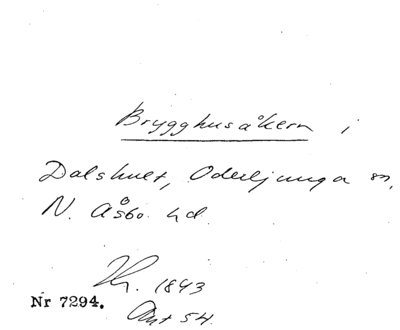 Brygghusåkern i
Dalshult, Oderljunga sn,
N. Åsbo hd.
1843
Nr 7294.
Akt 54.